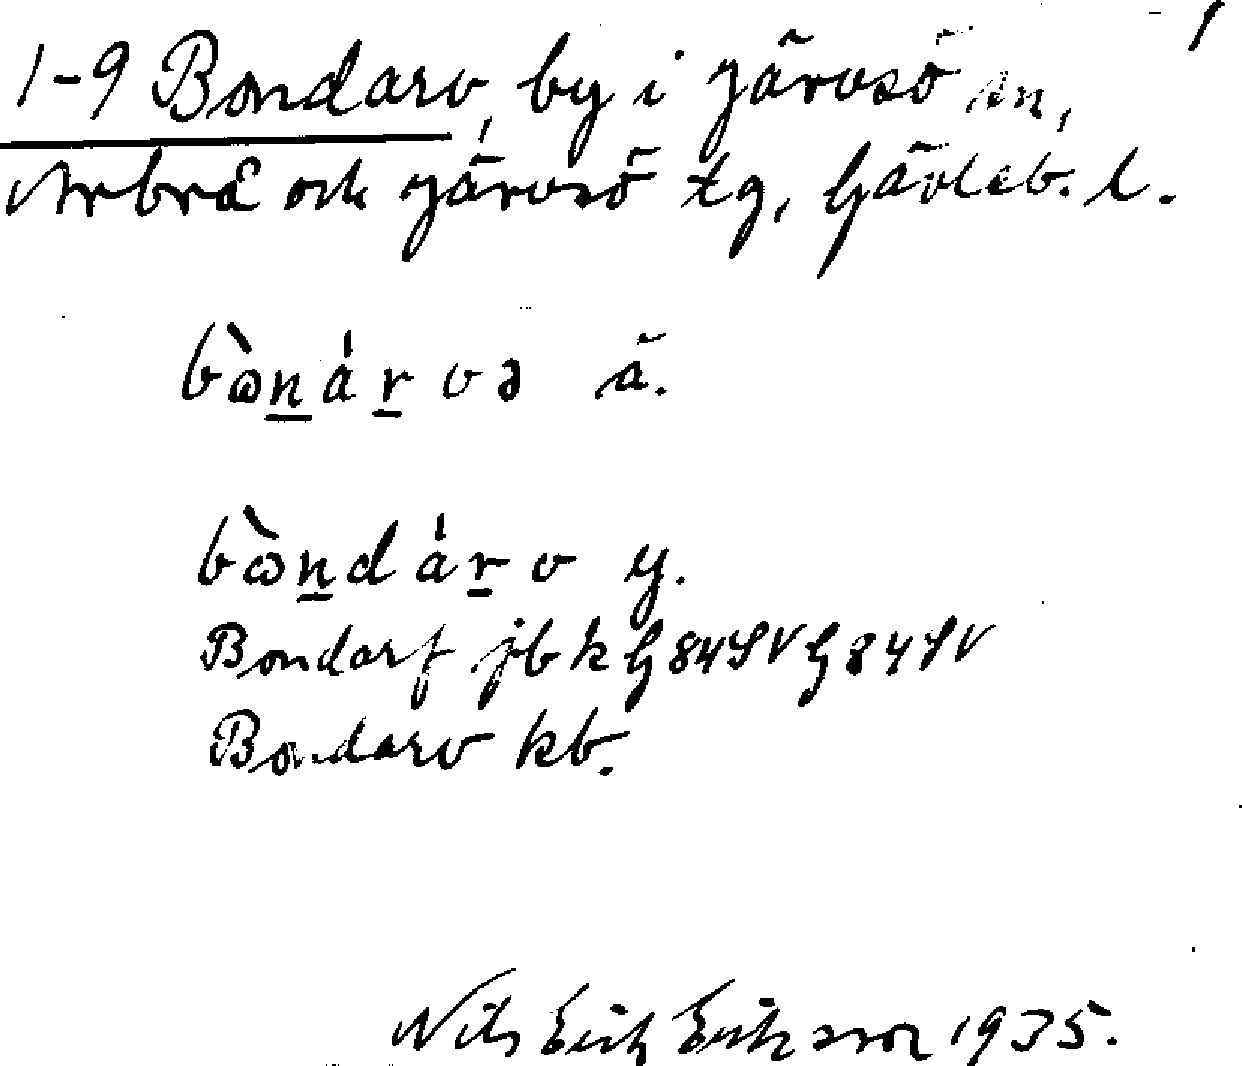 1-9 Bondarv, by i Järvsö sn,
Arbrå och Järvsö tg, Gävleb. l.
bòn̲áṟvə ä.
bòn̲dáṟv y.
Bondarf jb k G84SV G84SV
Bondarv kb.
Nils Erik Eriksson 1935.